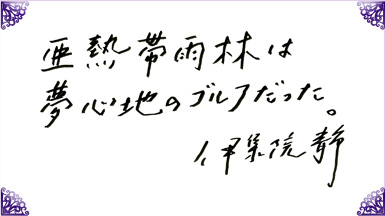 亜熱帯雨林は
夢心地のゴルフだった。
伊集院静